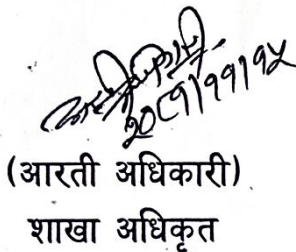 २०८१।११।१५
(आरती अधिकारी)
शाखा अधिकृत